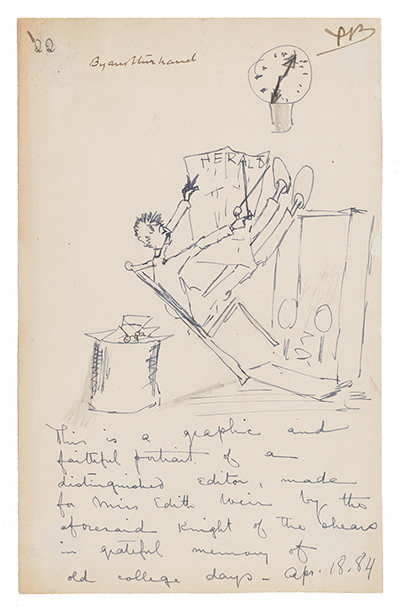 22
By another hand
HERALD
This is a graphic and
faithful portrait of a
distinguished Editor, made
for Miss Edith Weir by the
aforesaid Knight of the shears
in grateful memory of
old college days - Apr. 18. 84